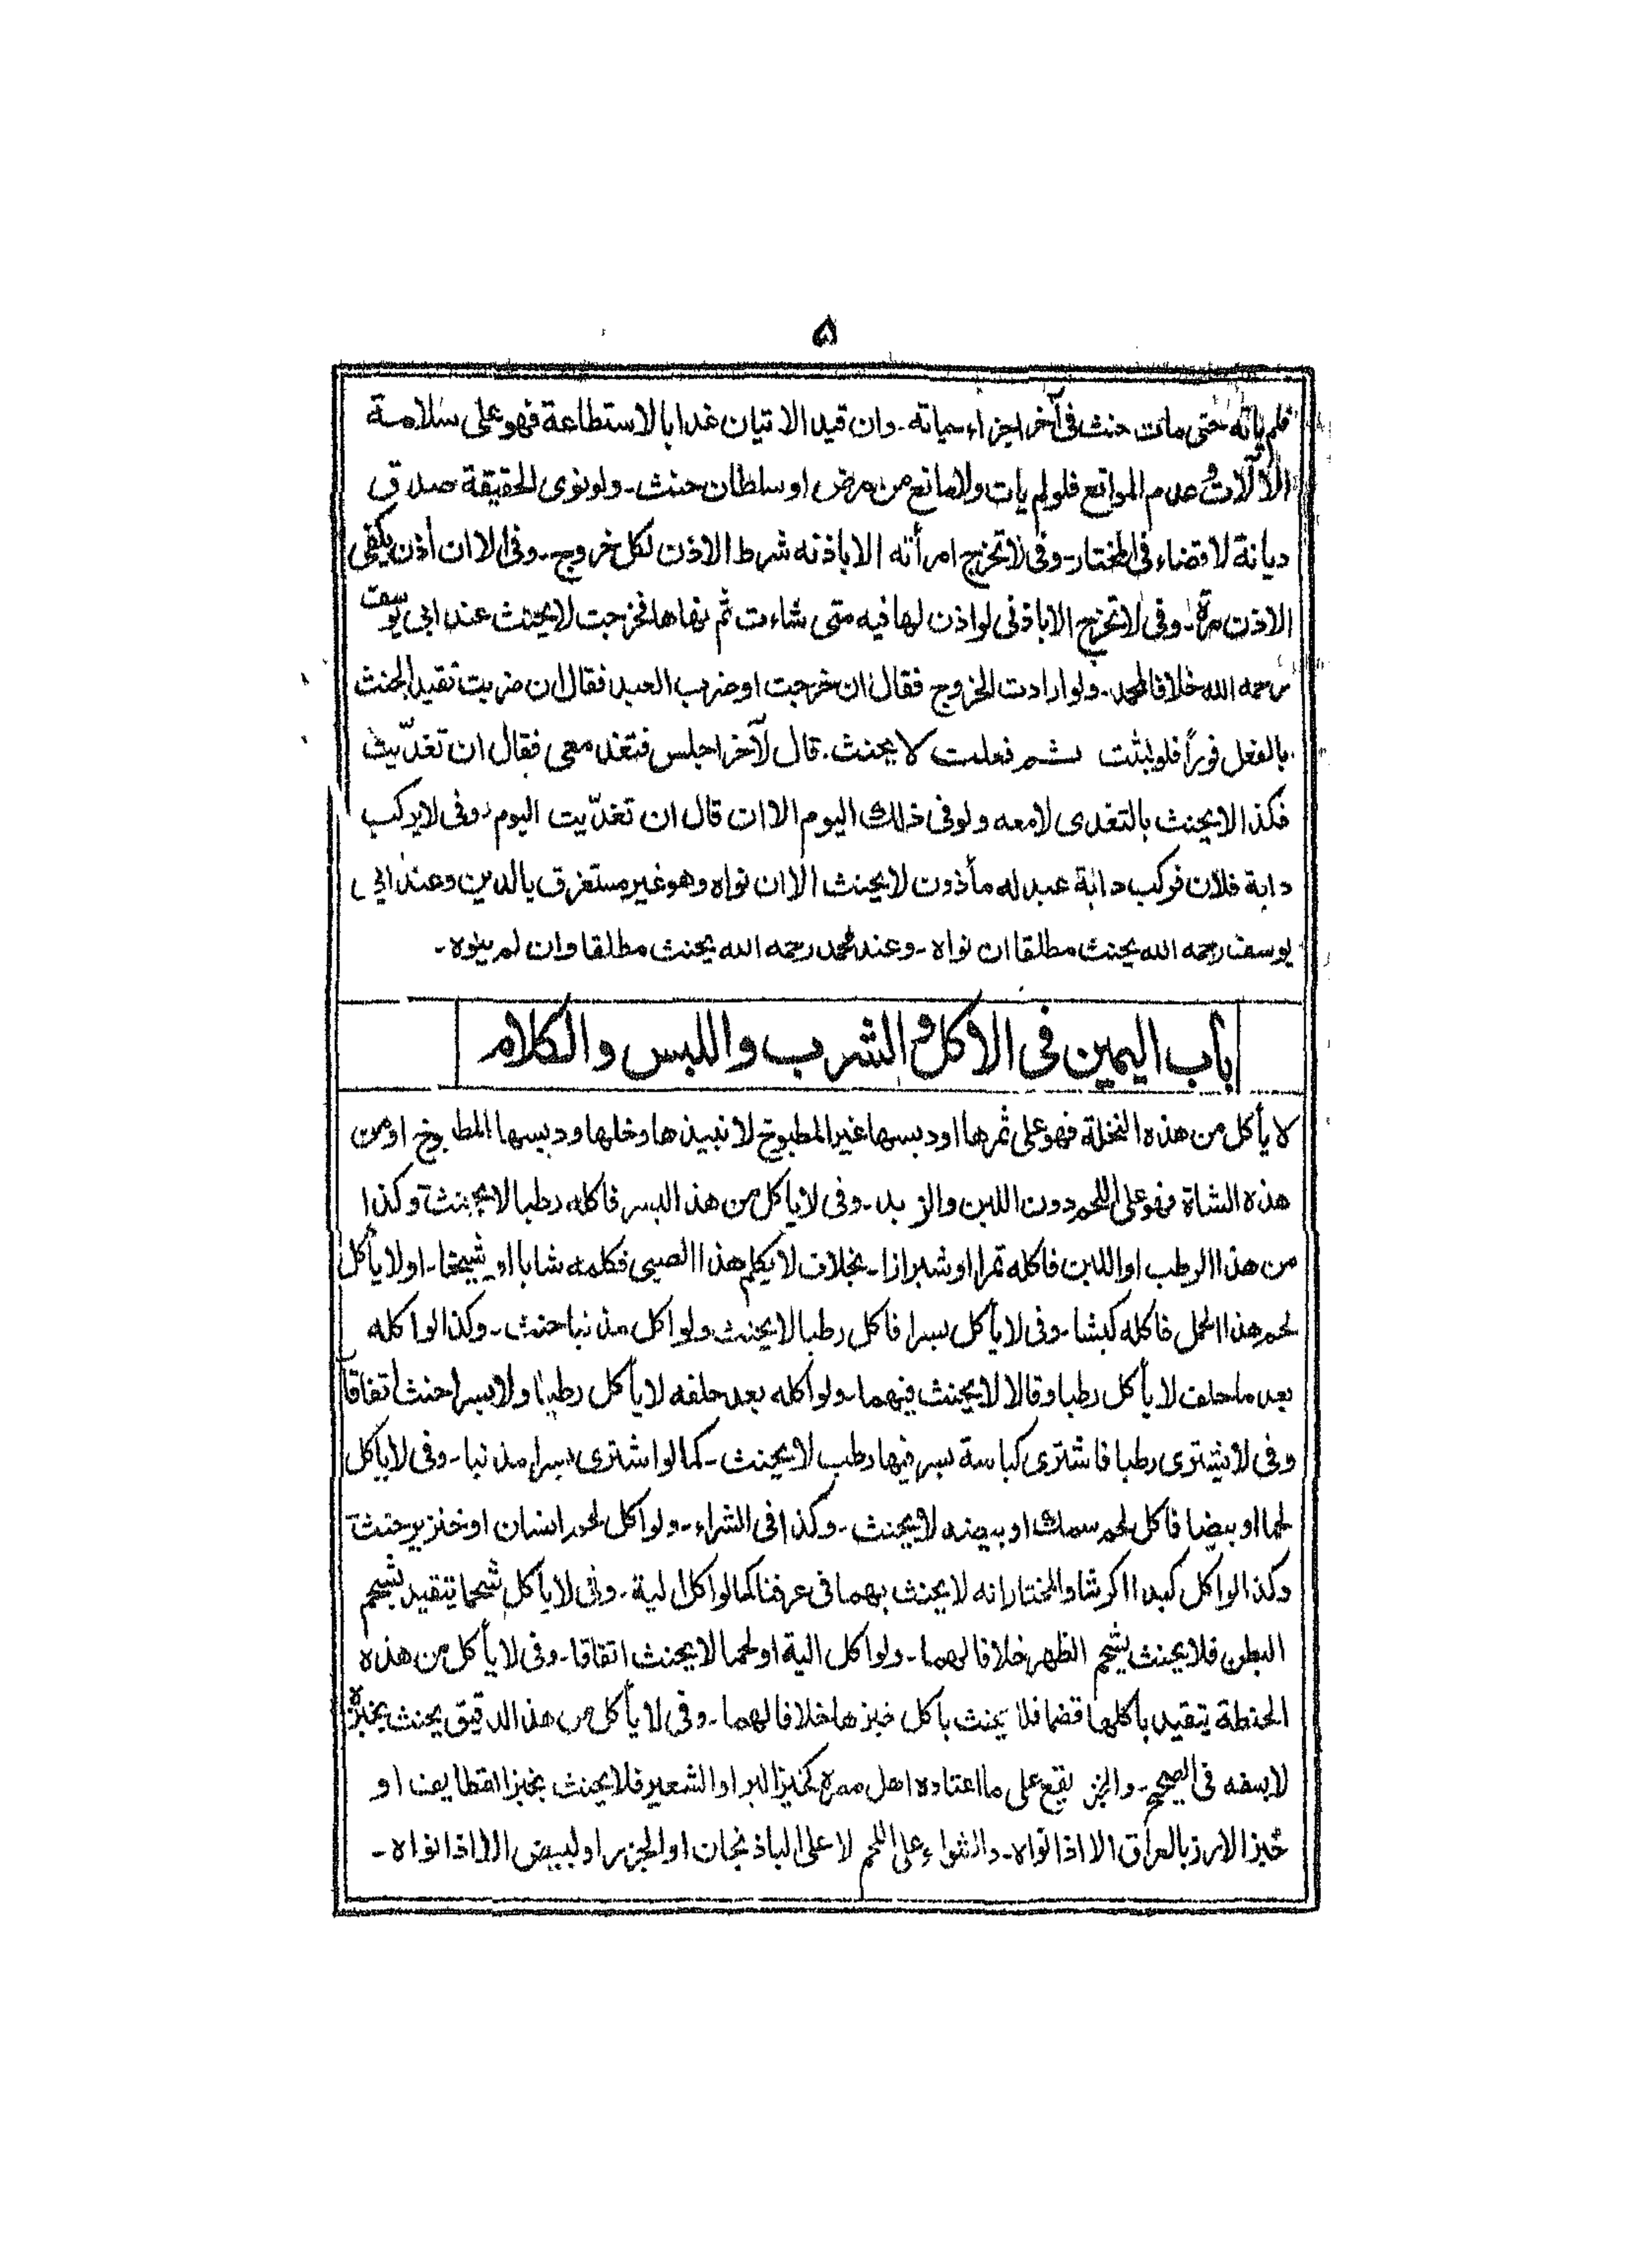 ۵
فلم ياته حتى مات حنث فى آخر اجزاء حياته۔ وان قيد الاتيان غدا بالاستطاعة فهو على سلامة
الآلات وعدم الموانع فلو لم يات ولا مانع من مرض او سلطان حنث۔ ولو نوى الحقيقة صدق
ديانة لا قضاء فى المختار۔ وفى لا تخرج امرأته الا باذنه شرط الاذن لكل خروج۔ وفى الا ان أذن يكفى
الاذن مرّة۔ وفى لا تخرج الا باذنى لو اذن لها فيه متى شاءت ثم نهاها فخرجت لا يحنث عند ابى يوسف
رحمه الله خلافا لمحمد۔ ولو ارادت الخروج فقال ان خرجت او ضرب العبد فقال ان ضربت تقيد الحنث
بالفعل فوراً فلو لبثت ثم فعلت لا يحنث۔ قال لآخر اجلس فتغد معى فقال ان تغدّيت
فكذا لا يحنث بالتغدى لا معه ولو فى ذلك اليوم الا ان قال ان تغدّيت اليوم۔ وفى لا يركب
دابة فلان فركب دابة عبد له مأذون لا يحنث الا ان نواه وهو غير مستغرق بالدين وعند ابى
يوسف رحمه الله يحنث مطلقا ان نواه۔ وعند محمد رحمه الله يحنث مطلقا وان لم ينوه۔
باب اليمين فى الاكل والشرب واللبس والكلام
لا يأكل من هذه النخلة فهو على ثمرها او دبسها غير المطبوخ لا نبيذها وخلها ودبسها المطبوخ او من
هذه الشاة فهو على اللحم دون اللبن والزبد۔ وفى لا ياكل من هذ البسر فاكله رطبا لا يحنث وكذا
من هذا الرطب او اللبن فاكله تمرا او شيرازا۔ بخلاف لا يكلم هذا الصبى فكلمه شابا او شيخا۔ او لا يأكل
لحم هذا الحمل فاكله كبشا۔ وفى لا يأكل بسرا فاكل رطبا لا يحنث ولو اكل مذنبا حنث۔ وكذا لو اكله
بعد ما حلف لا يأكل رطبا وقالا لا يحنث فيهما۔ ولو اكله بعد حلفه لا يأكل رطبا ولا بسرا حنث اتفاقا
وفى لا يشترى رطبا فاشترى كباسة بسر فيها رطب لا يحنث۔ كما لو اشترى بسرا مذنبا۔ وفى لا ياكل
لحما او بيضا فاكل لحم سمك او بيضه لا يحنث۔ وكذا فى الشراء۔ ولو اكل لحم انسان او خنزير حنث
وكذا لو اكل كبدا او كرشا والمختار انه لا يحنث بهما فى عرفنا كما لو اكل الية۔ وفى لا يأكل شحما يتقيد بشحم
البطن فلا يحنث بشحم الظهر خلافا لهما۔ ولو اكل الية او لحما لا يحنث اتفاقا۔ وفى لا يأكل من هذه
الحنطة يتقيد باكلها قضما فلا يحنث باكل خبزها خلافا لهما۔ وفى لا يأكل من هذ الدقيق يحنث بخبزه
لا بسفه فى الصحيح۔ والخبز يقع على ما اعتاده اهل مصره كخبز البر او الشعير فلا يحنث بخبز القطايف او
خبز الارز بالعراق الا اذا نواه۔ والشواء على اللحم لا على الباذنجان او الجزر او البيض الا اذا نواه۔